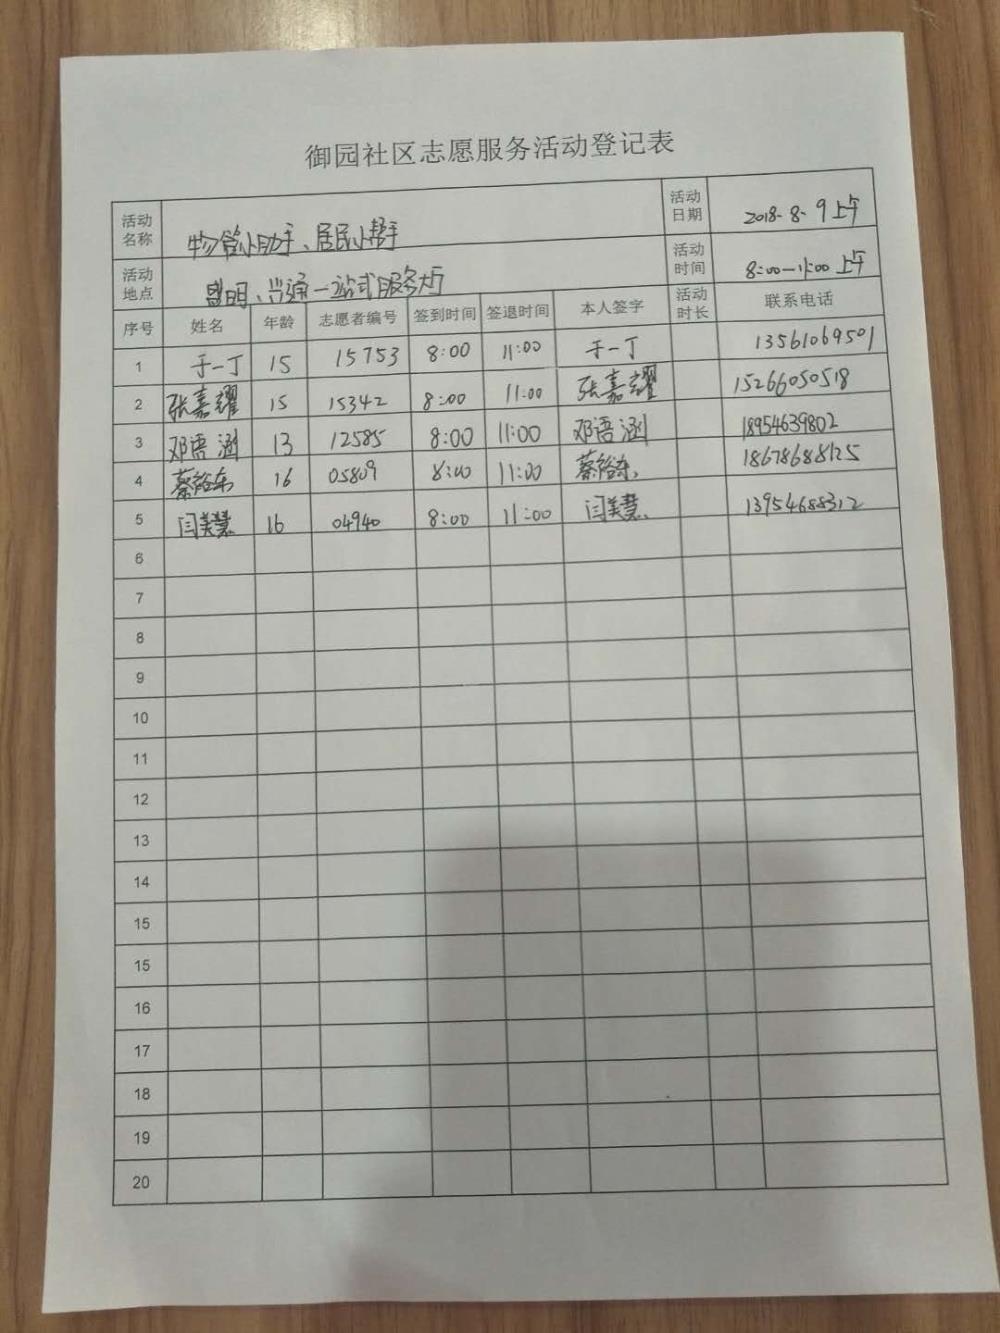 御园社区志愿服务活动登记表
活动名称 物管小助手、居民小帮手 活动日期 2018-8-9上午
活动地点 昆明、兴通一站式服务大厅 活动时间 8:00—11:00 上午
序号 姓名 年龄 志愿者编号 签到时间 签退时间 本人签字 活动时长 联系电话
1 于一丁 15 15753 8:00 11:00 于一丁 13561069501
2 张嘉耀 15 15342 8:00 11:00 张嘉耀 15266050518
3 邓语涵 13 12585 8:00 11:00 邓语涵 18954639802
4 蔡裕东 16 05809 8:00 11:00 蔡裕东 18678688125
5 闫美慧 16 04940 8:00 11:00 闫美慧 13954688312
6
7
8
9
10
11
12
13
14
15
15
16
17
18
19
20